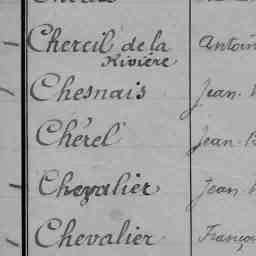 Chereil de la Antoin
Rivière
Chesnais Jean
Chérel Jean
Chevalier Jean
Chevalier Franço